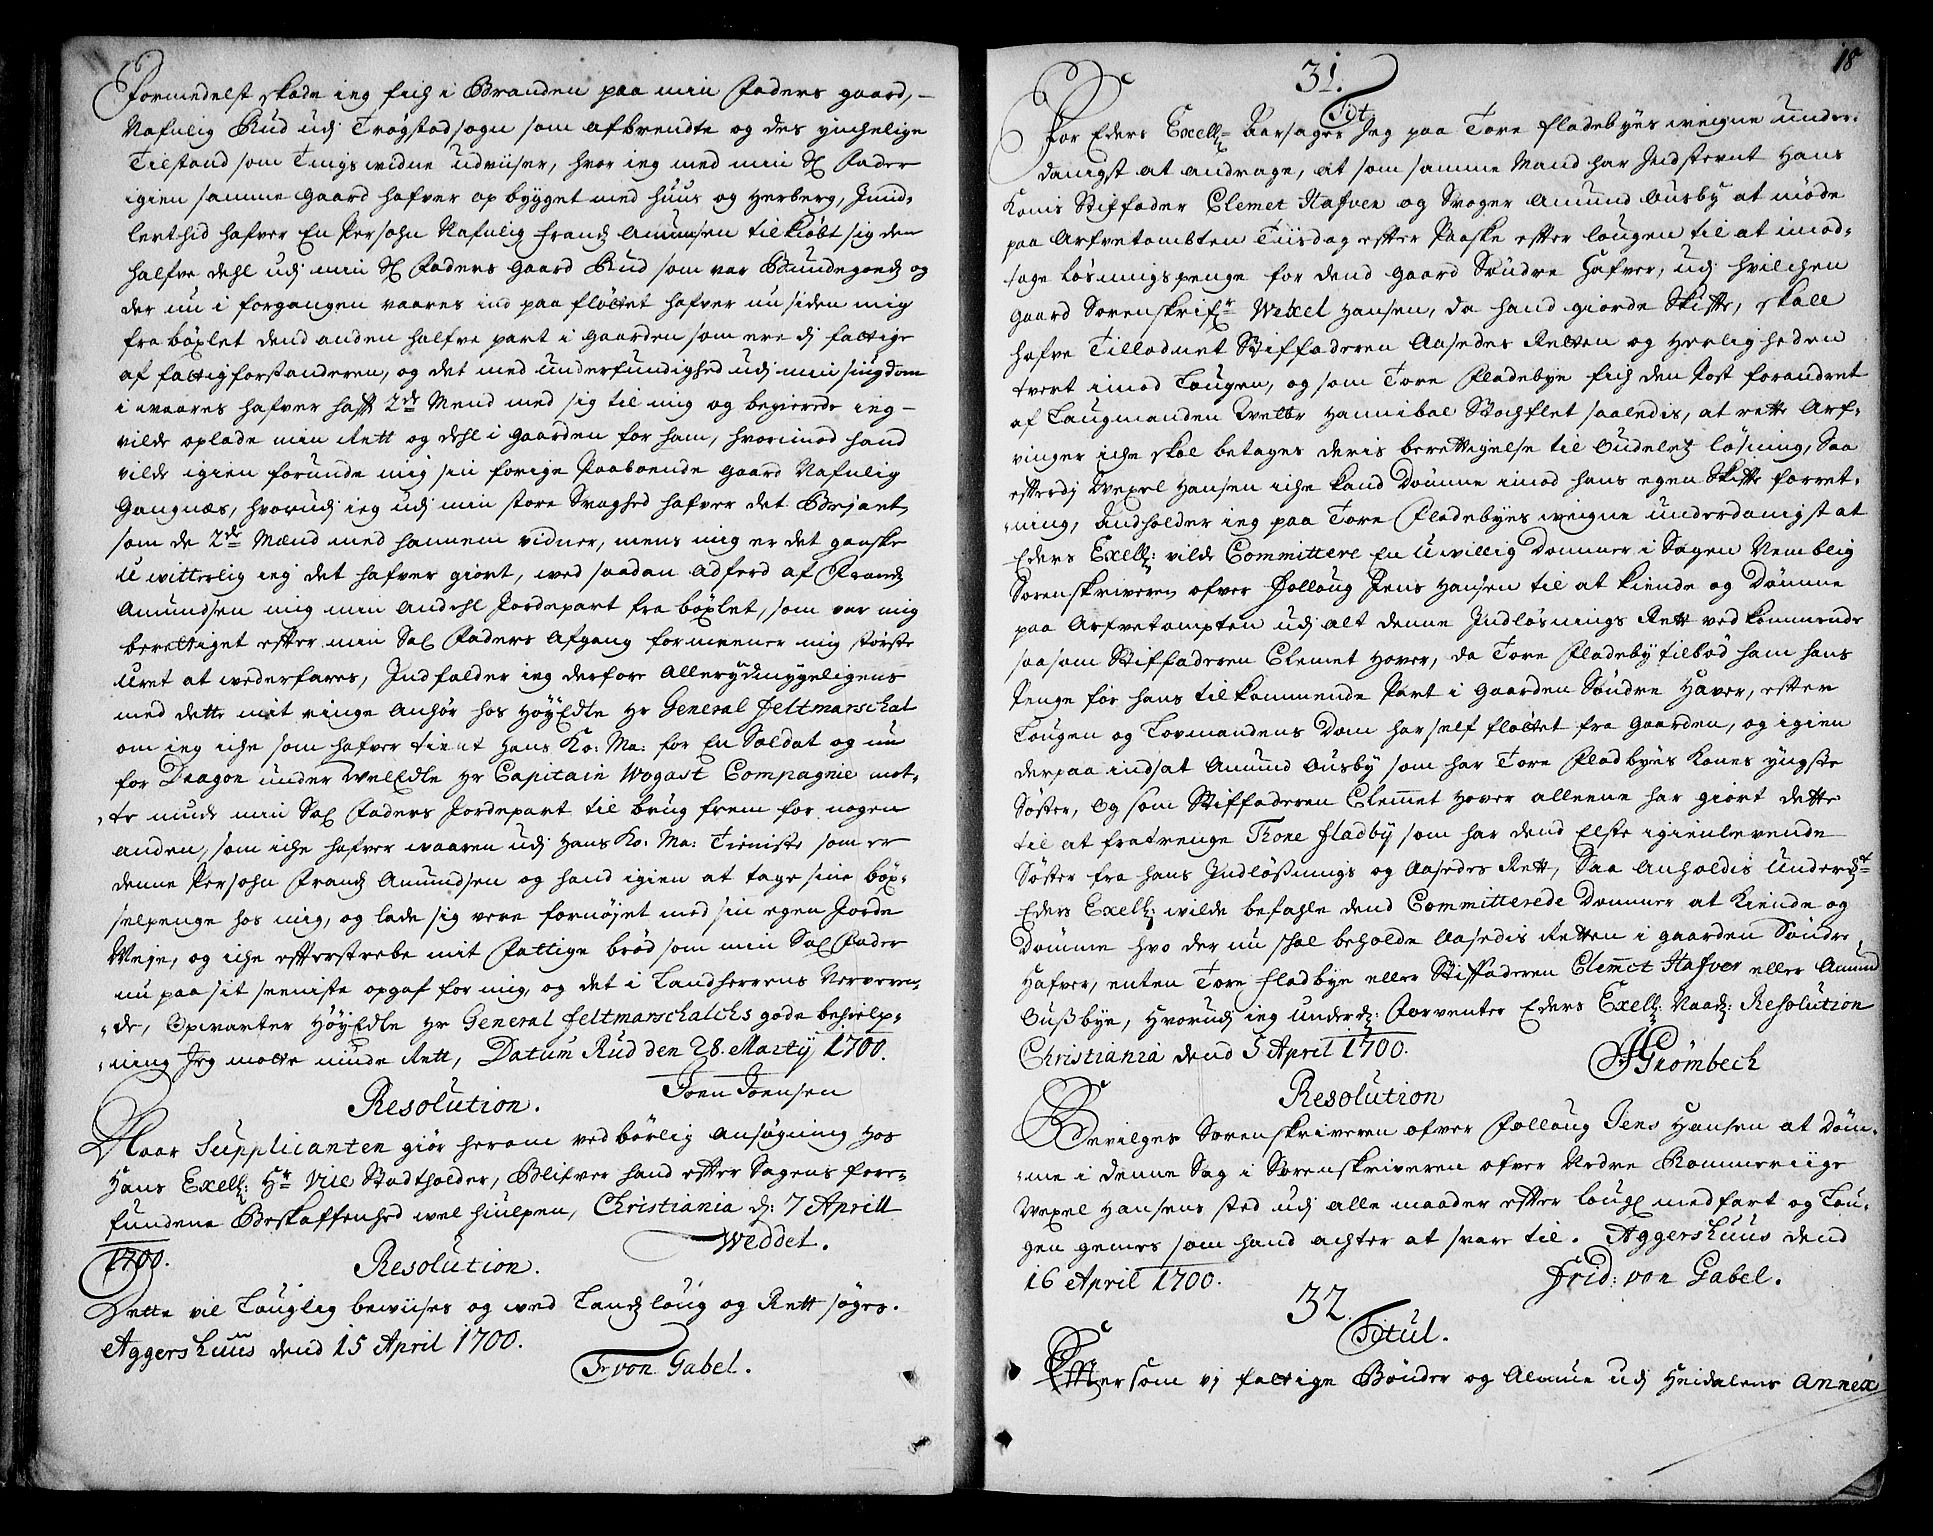 Formedelst skade ieg fich i Branden paa min Faders gaard,
Nafnlig Rud udj Trøgstad sogn som afbrendte og des ynchelige
Tilstand som Tings widne udviiser, hvor ieg med min Sl Fader
igien samme gaard hafver op bygget med huus og herberg, Imid-
lerthid hafver En Persohn Nafnlig Frandz Amunsen tilkiøbt sig den
halfve dehl udj min Sl Faders gaard Rud som var Bundegoedz og
der nu i forgangen vaares ind paa fløttet hafver nu siden mig
fra bøxlet dend anden halfve part i gaarden som ere dj fattige
af fattigforstanderen, og det med underfundighed udj min siugdom
i waares hafver hafft 2de Mend med sig til mig og begierede ieg
vilde oplade min Rett og dehl i gaarden for ham, hvorimod hand
vilde igien forunde mig sin forige Paaboende gaard Nafnlig
Gangnæs, hvorudj ieg udj min store Svaghed hafver det Bejaet,
som de 2de Mænd med hannem vidner, mens mig er det ganske
U witterlig ieg det hafver giort, wed saadan adferd af Frandz
Amundsen mig min andehl Jordepart fra bøxlet, som var mig
berettiget efter min Sal Faders Afgang formeener mig største
Uret at wederfares, Indfalder ieg derfore Allerydmygeligens
med dette mit ringe Anhør hos HøyEdle Hr General Feltmarschal
om ieg iche som hafver tient Hans Ko: Ma: for En Soldat og nu
for Dragon under WelEdle Hr Capitain Wogast Compagnie mot-
te nyde min Sal Faders Jordepart til brug frem for nogen
anden, som iche hafver waaren udj Hans Ko: Ma: Tieniste som er
denne Persohn Frandz Amundsen og hand igien at tage sine bøx-
selpenge hos mig, og lade sig vere fornøyet med sin egen Jorde
Weje, og iche efterstrebe mit Fattige brød som min Sal Fader
nu paa sit seeniste opgaf for mig, og det i Landherrens Nerveren-
de, Opwarter HøyEdle Hr General Feltmarschalchs gode behielp-
ning Jeg motte nyde Rett, Datum Rud den 28. Martij 1700.
Joen Joensen
Resolution.
Naar Supplicanten giør herom vedbørlig Ansøgning hos
Hans Exell: Hr Vice Stadtholder, Blifver hand efter Sagens fore-
fundene Beskaffenhed wel hiulpen, Christiania d: 7 Aprill
1700. Weddet.
Resolution.
Dette vil Louglig bewiises og wed Landz loug og Rett søges.
Aggershuus dend 15 April 1700.
Fr von Gabel.
18
31.
Tit
For Eders Exell: Aarsages Jeg paa Tore Fladebyes weigne under-
danigst at andrage, at som samme Mand har Indstevnt Hans
Konis Stiffader Clemet Hafver og Svoger Amund Ousby at møde
paa Arfvetombten Tiisdag efter Paaske efter lougen til at imod-
tage løsningspenge for dend gaard Søndre Hafver, udj hvilchen
gaard Sorenskrifr Wexel Hansen, da hand giorde Skifte, skall
hafve Tilladnet Stiffaderen Aasedes Retten og Herligheden
tvert imod Lougen, og som Tore Fladebye fich den Post forandret
af Laugmanden Welb: Hannibal Stochflet saaledis, at rette Arf-
vinger iche skal betages deris berettigelse til Oudeletz løsning, Saa
efterdj Wexel Hansen iche kand Dømme imod hans egen Skifte forret-
ning, Andholder ieg paa Tore Fladebyes weigne underdanigst at
Eders Exell: vilde Committere En Uwillig Dommer i Sagen Nemblig
Sorenskriveren ofver Folloug Jens Hansen til at kiende og Dømme
paa Arfvetompten udj alt denne Indløsnings Rett vedkommende
saasom Stiffaderen Clemet Hover, da Tore Fladeby tilbød ham hans
Penge for hans tilkommende Part i gaarden Søndre Haver, efter
Lougen og Lovmandens Dom har self fløttet fra gaarden, og igien
derpaa indsat Amund Ousby som har Tore Fladbyes Kones yngste
Søster, Og som Stiffaderen Clemet Hover alleene har giort dette
til at fratrenge Thore Fladby som har dend Elste igienlevende
Søster fra hans Indløßnings og Aasedes Rett, Saa Anholdis Underdt
Eders Exell: wilde befahle dend Committerede Dommer at Kiende og
Dømme hvo der nu skal beholde Aasedis Retten i gaarden Søndre
Hafver, enten Tore Fladbye eller Stiffaderen Clemet Hafver eller Amund
Oußbye, Hvorudj ieg underd: Forventer Eders Exell: Naadz: Resolution
Christiania dend 5 April 1700.
Grømbech
Resolution
Bevilges Sorenskriveren ofver Folloug Jens Hansen at Døm-
me i denne Sag i Sorenskriveren ofver Nedre Rommeriige
Wexel Hansens sted udj alle maader efter lougl medfart og Lou-
gen gemes som hand achter at svare til. Aggershuus dend
16 April 1700. Frid: von Gabel.
32
Titul.
Eftersom vj fattige Bønder og Almue udj Heidalens Annex